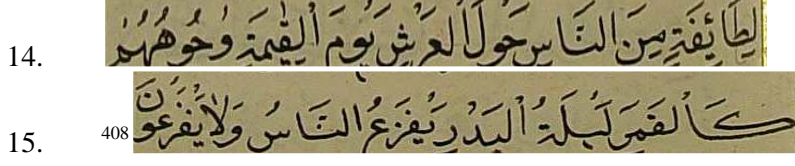 14. لِطَائِفَةٍ مِنَ النَّاسِ حَوْلَ الْعَرْشِ يَوْمَ الْقِيٰمَةِ وُجُوهُهُمْ
15. 408 كَالْقَمَرِ لَيْلَةَ الْبَدْرِ يَفْزَعُ النَّاسُ وَلَا يَفْزَعُونَ